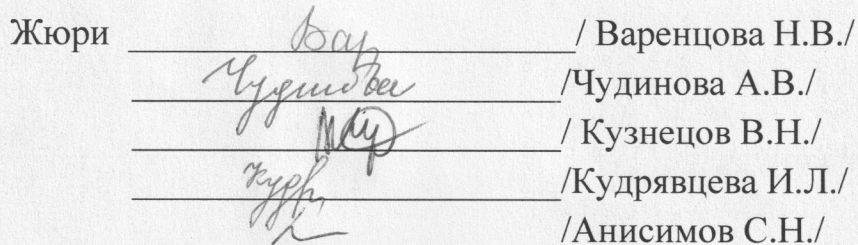 Жюри Вар / Варенцова Н.В./
Чудинова /Чудинова А.В./
/ Кузнецов В.Н./
Кудр /Кудрявцева И.Л./
/Анисимов С.Н./